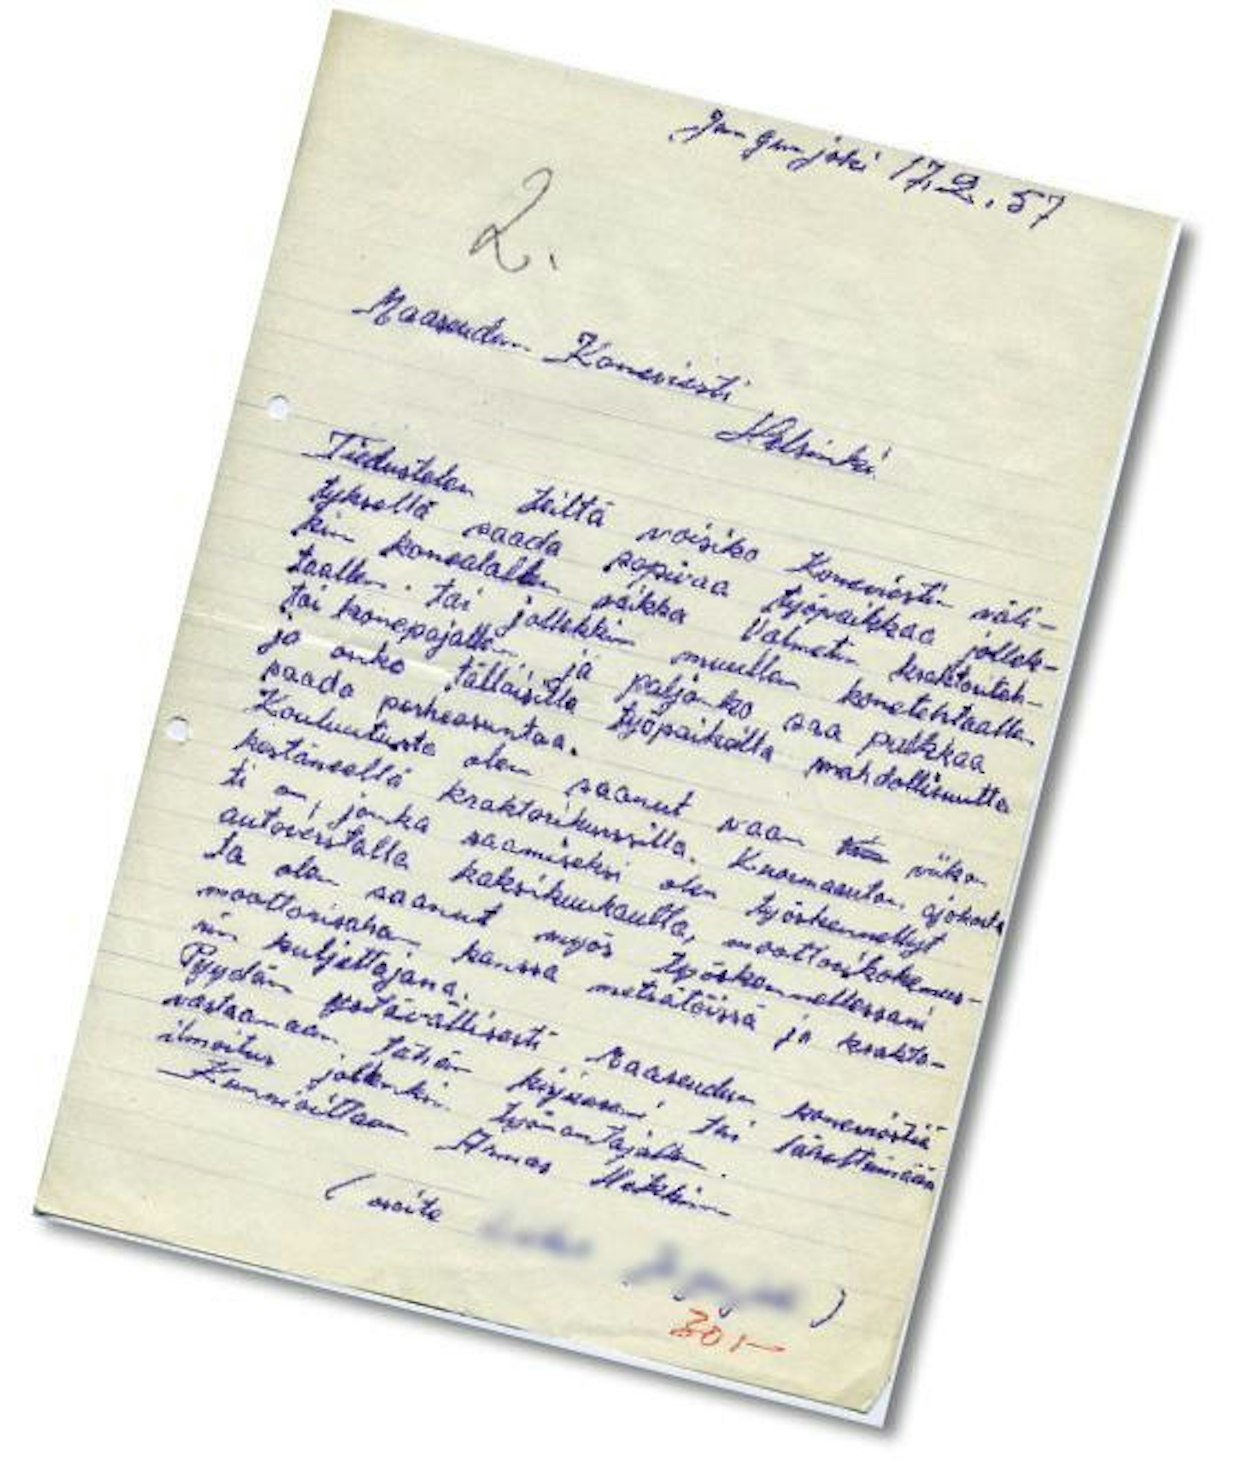 Jungunjoki 17.2.57
2.
Maaseudun Koneviesti
Helsinki.
Tiedustelen teiltä voisiko Koneviestin väli-
tyksellä saada sopivaa työpaikkaa jollek-
kin konealallen vaikka Valmetin traktoriteh-
taallen. tai jollekkin muullen konetehtaallen
tai konepajallen ja paljonko saa palkkaa
ja onko tälläisillä työpaikoilla mahdollisuutta
saada perheasuntoa.
Kouluutusta olen saanut vaan viikon
kestäneellä traktorikurssilla. Kuormaauton ajokort-
ti on, jonka saamiseksi olen työskennellyt
autoverstalla kaksikuukautta, moottorikokemus-
ta olen saanut myös työskennellessäni
moottorisahan kanssa metsätöissä ja trakto-
rin kuljettajana.
Pyydän ystävällisesti Maaseudun koneviestiä
vastaamaan tähän kirjeeseni tai lähettämään
ilmoitus jollenkin työnantajallen.
Kunnioittaen Armas
(osoite )
30,-